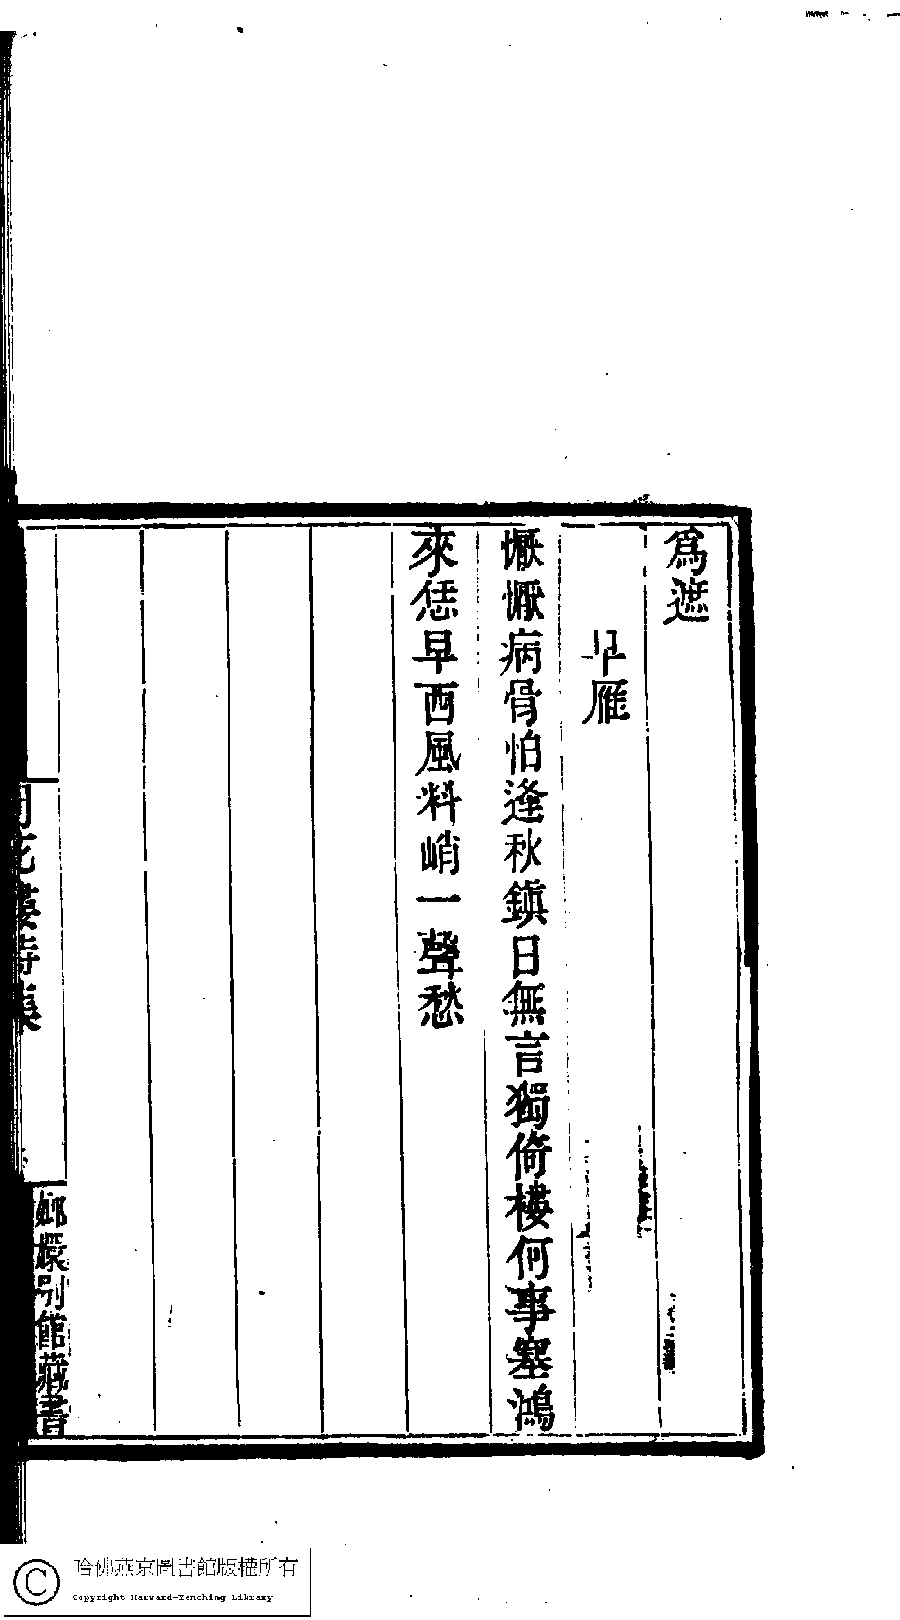 爲遮
早雁
懨懨病骨怕逢秋鎮日無言獨倚樓何事塞鴻
來恁早西風料峭一聲愁
花樓詩集
嫏嬛別館藏書
哈佛燕京圖書館版權所有
Copyright Harvard-Yenching Library